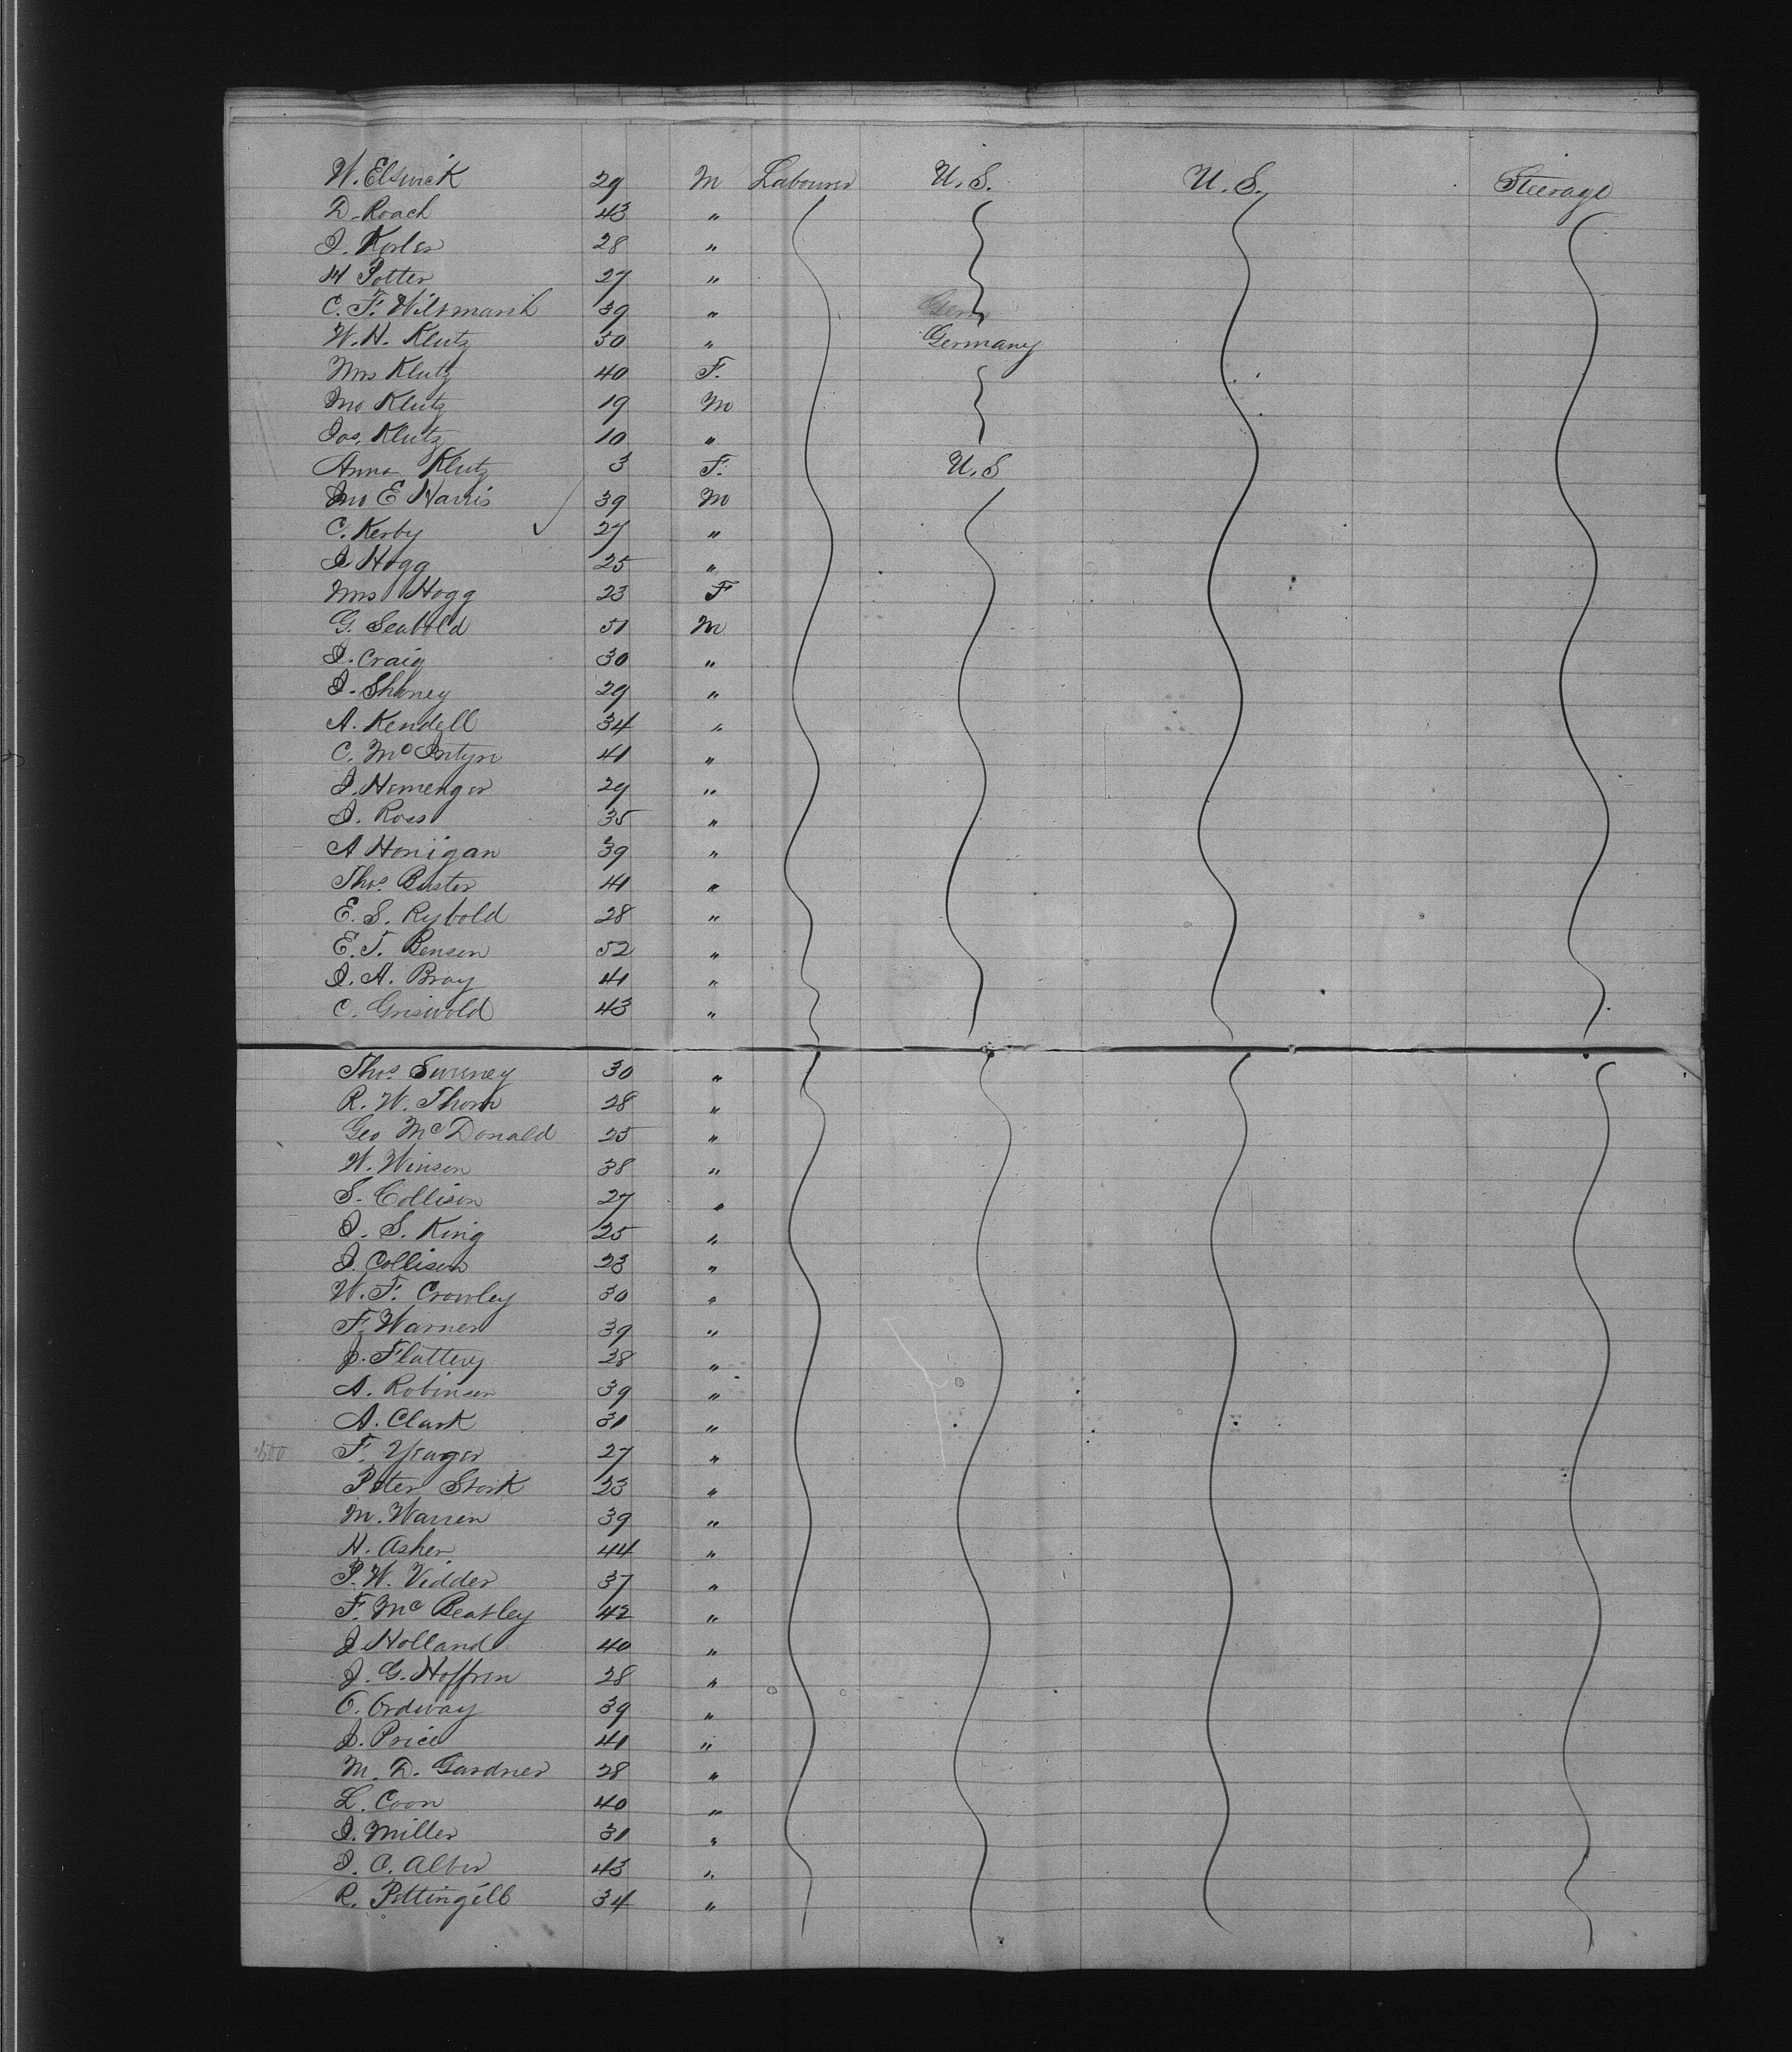 W. Elswick 29 M Labourer U.S. U.S. Steerage
D. Roach 43 "
J. Korler 28 "
H Potter 27 "
C. F. Wilsmarsh 39 " Germ
W. H. Klutz 30 " Germany
Mrs Klutz 40 F.
Jno Klutz 19 M
Jos. Klutz 10 "
Anna Klutz 3 F. U.S
Jno E Harris 39 M
C. Kerby 27 "
J. Hogg 25 "
Mrs Hogg 23 F
G. Seabold 51 M
J. Craig 30 "
J. Shoney 29 "
A. Kendell 34 "
C. McIntyre 41 "
J. Hemenger 29 "
J. Ross 35 "
A Honigan 39 "
Thos. Buster 41 "
E. S. Rybold 28 "
E. T. Benson 52 "
J. A. Bray 41 "
C. Griswold 43 "
Thos. Sweeney 30 "
R. W. Thorn 28 "
Geo McDonald 25 "
W. Winson 38 "
S. Collison 27 "
J. S. King 25 "
J. Collison 23 "
W. F. Crowley 30 "
F. Warner 39 "
J. Flattery 28 "
A. Robinson 39 "
A. Clark 31 "
F. Yeager 27 "
Peter Stork 23 "
M. Warren 39 "
H. Asher 44 "
P. W. Vidder 37 "
F. Mc Beatley 42 "
J Holland 40 "
J. G. Hoffren 28 "
O. Ordway 39 "
J. Price 41 "
M. D. Gardner 28 "
L. Coon 40 "
J. Miller 31 "
J. C. Alber 43 "
R. Pettingill 34 "